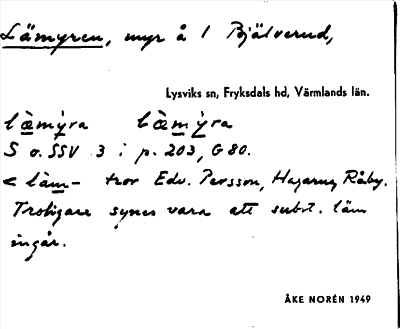 Lämyren, myr å 1 Bjälverud,
Lysviks sn, Fryksdals hd, Värmlands län.
l`æmy̆ra l`æmy̆ra
S o. SSV 3 i p. 203, G 80.
< läm- tror Edv. Persson, Hagarna, Råby.
Troligare synes vara att subst. läm
ingår.
ÅKE NORÉN 1949